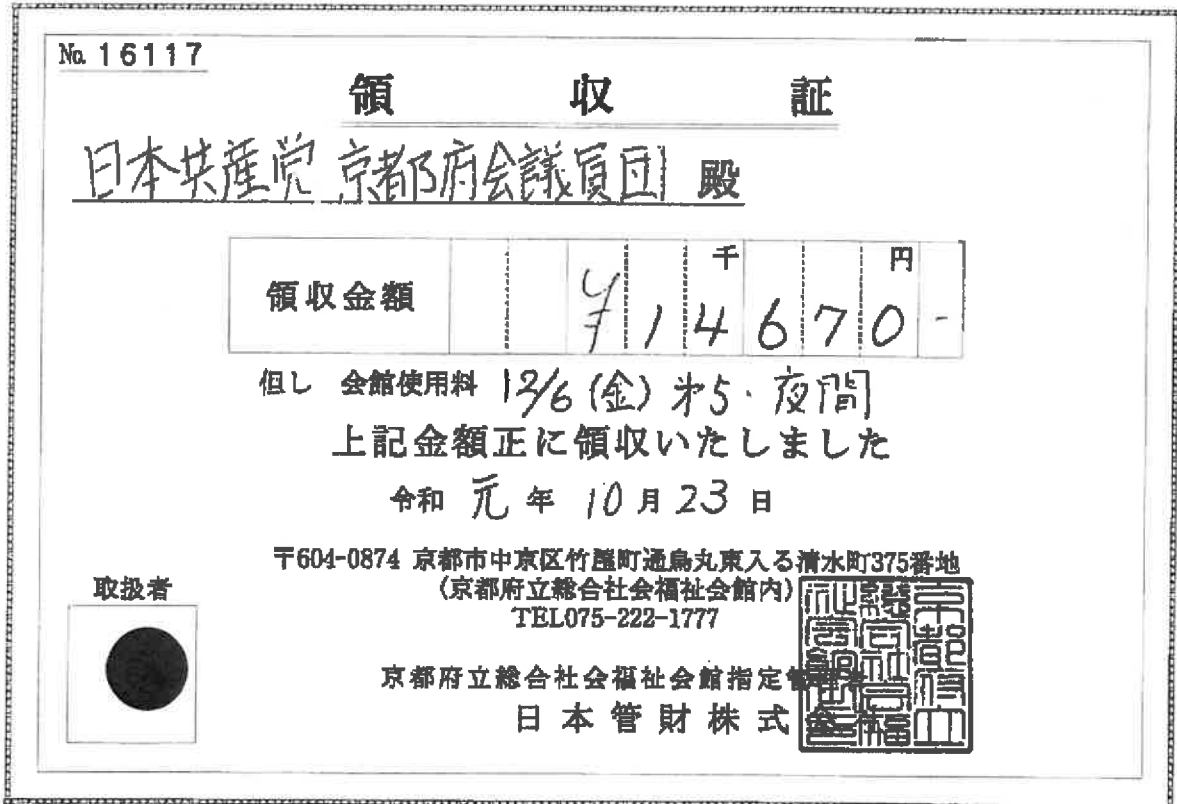 No. 16117
領収証
日本共産党 京都府会議員団 殿
千 円
領収金額 ¥14670-
但し 会館使用料 12/6(金) 才5・夜間
上記金額正に領収いたしました
令和 元 年 10 月 23 日
〒604-0874 京都市中京区竹屋町通烏丸東入る清水町375番地
(京都府立総合社会福祉会館内)
TEL075-222-1777
取扱者
京都府立総合社会福祉会館指定管理者
日本管財株式会